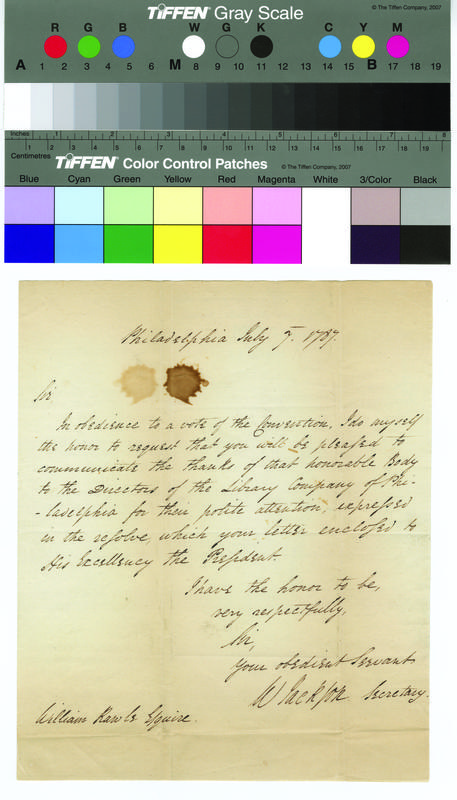 TIFFEN Gray Scale
© The Tiffen Company, 2007
R G B W G K C Y M
A 1 2 3 4 5 6 M 8 9 10 11 12 13 14 15 B 17 18 19
Inches 1 2 3 4 5 6 7 8
Centimetres 1 2 3 4 5 6 7 8 9 10 11 12 13 14 15 16 17 18 19
TIFFEN Color Control Patches
© The Tiffen Company, 2007
Blue Cyan Green Yellow Red Magenta White 3/Color Black
Philadelphia July 7. 1787.
Sir
In obedience to a vote of the Convention, I do myself
the honor to request that you will be pleased to
communicate the thanks of that honorable Body
to the Directors of the Library Company of Phi-
-ladelphia for their polite attention, expressed
in the resolve, which your letter enclosed to
His Excellency the President.
I have the honor to be,
very respectfully,
Sir,
Your obedient Servant
W Jackson Secretary.
William Rawle Esquire.